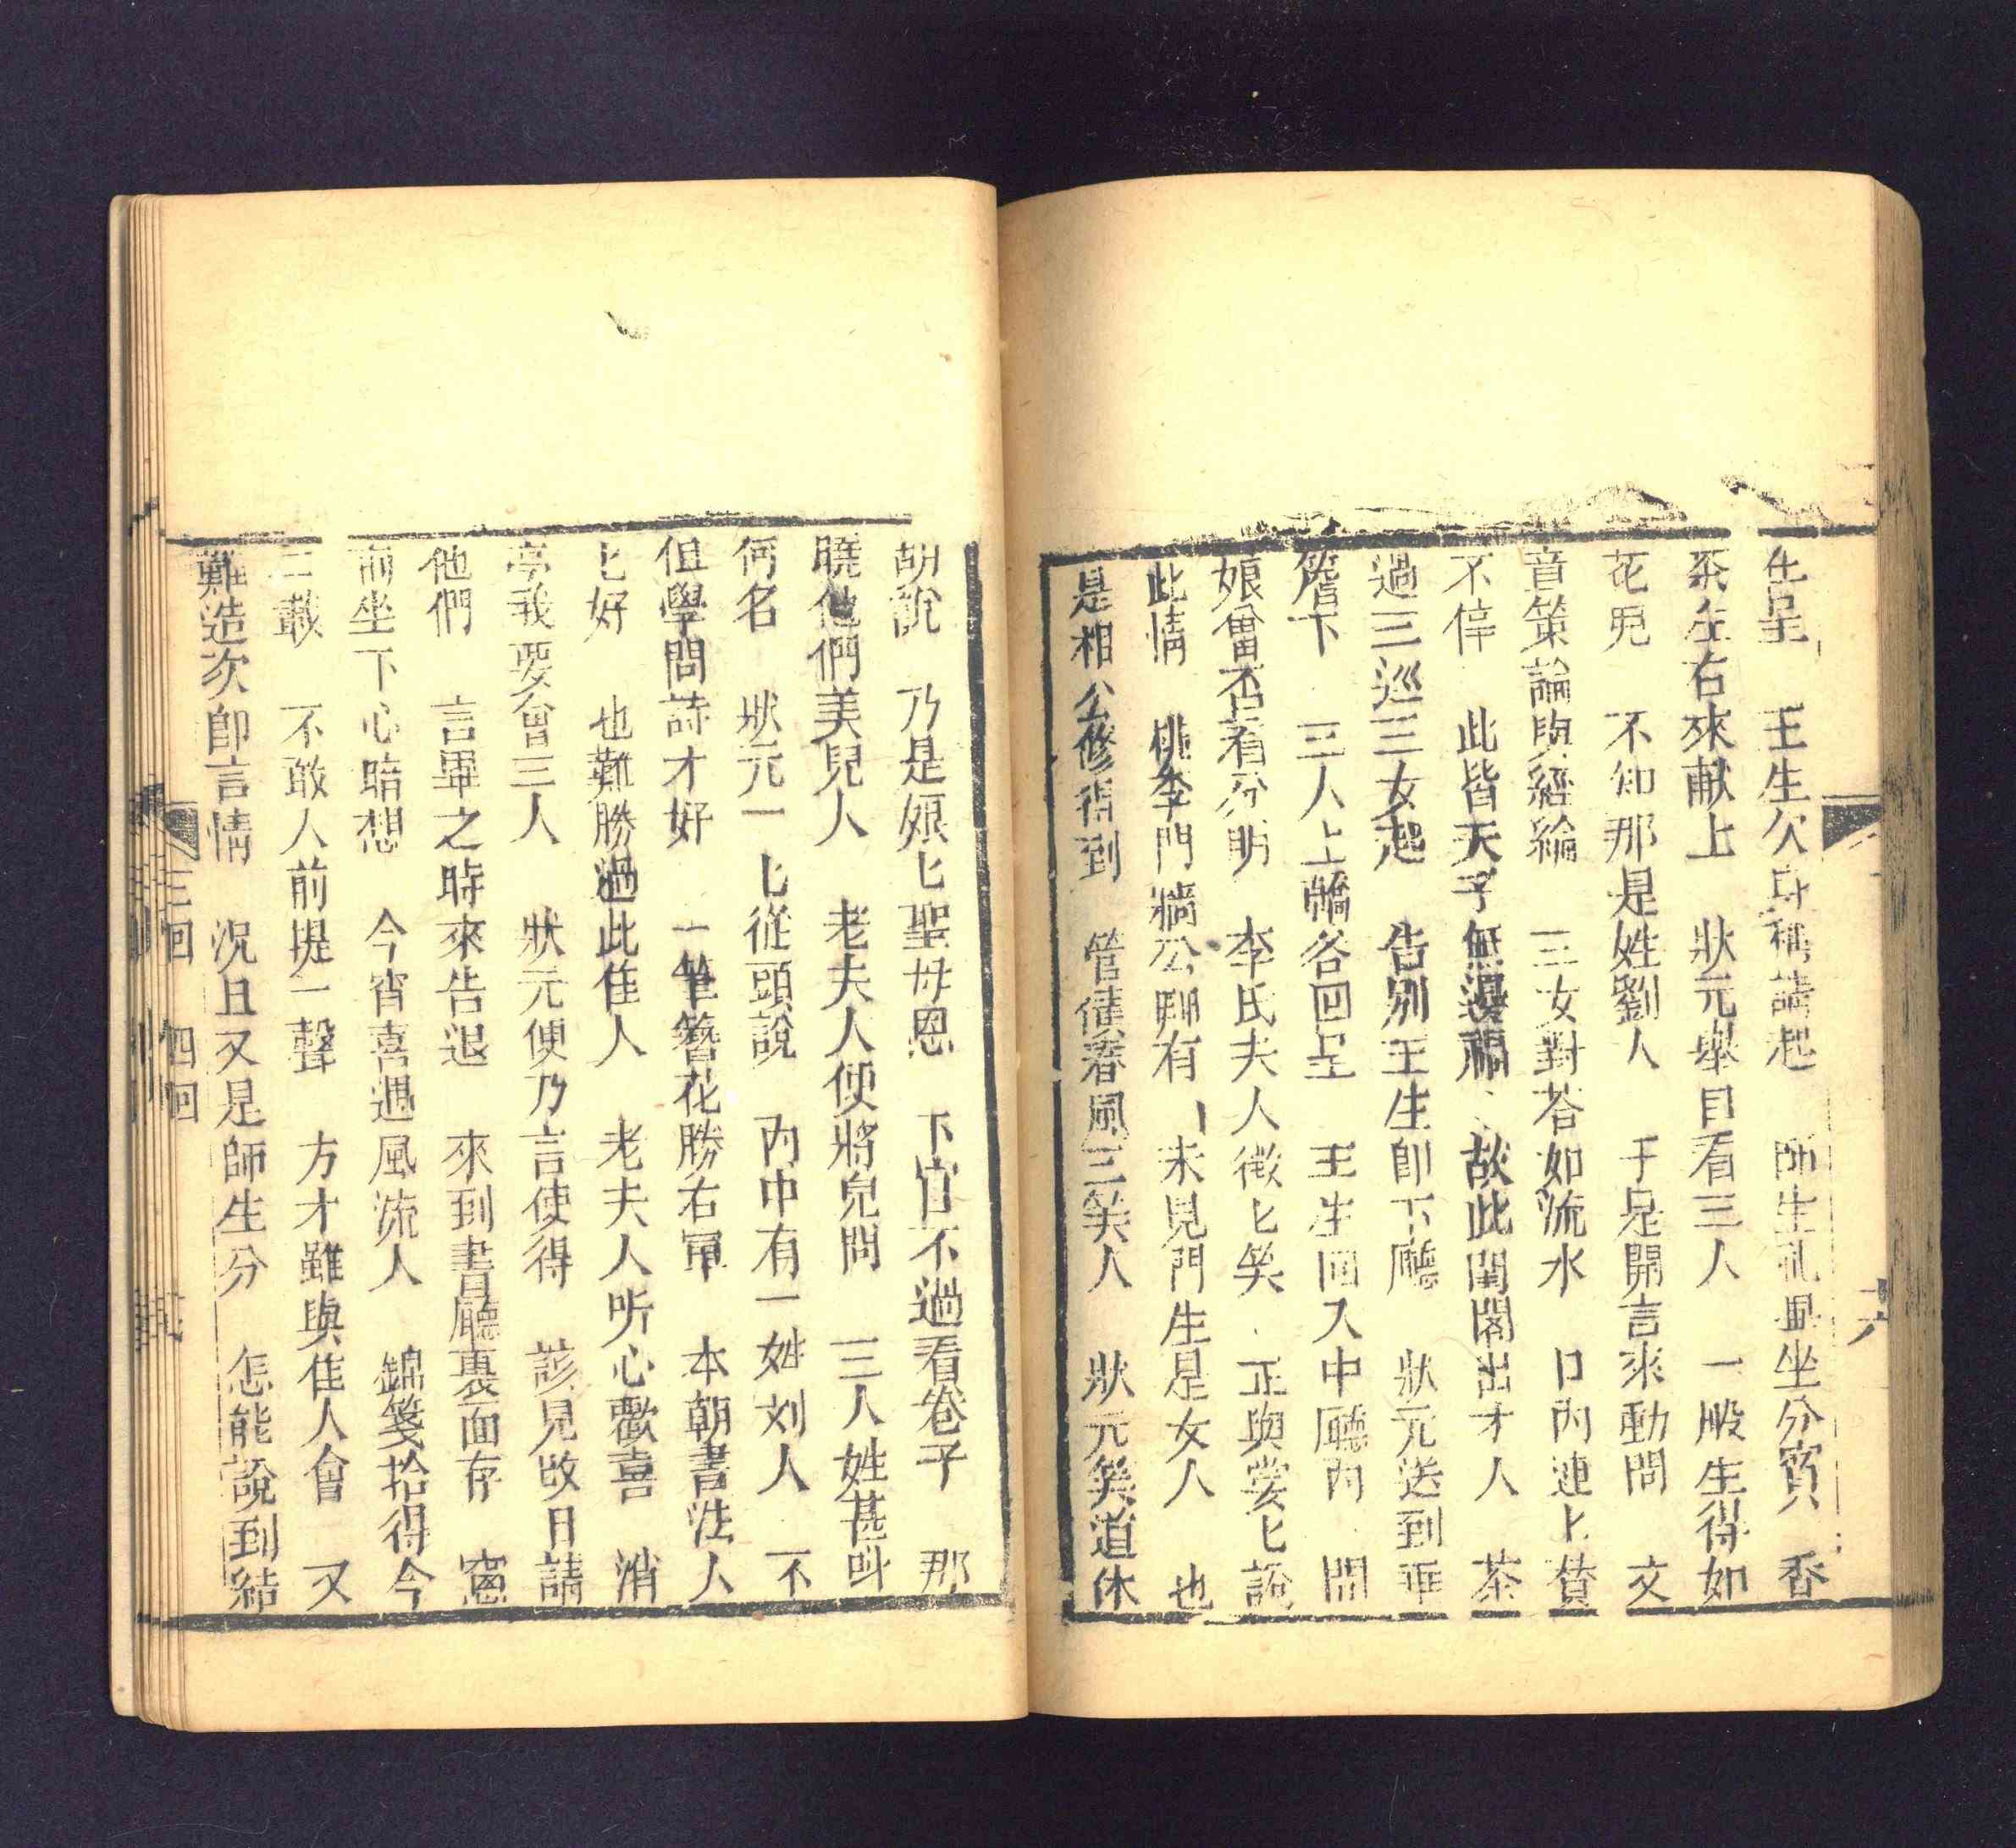 生呈　王生欠身稱請起　師生礼畢坐分賓　香
茶左右來獻上　狀元舉目看三人　一般生得如
花兒　不知那是姓劉人　于是開言來動問　文
音策論與經綸　三女對荅如流水　口內連上賛
不停　此皆天子無漫福　故此閨閣出才人　茶
過三巡三女起　告別王生即下廳　狀元送到垂
簷下　三人上轎各回呈　王生回又中廳內　問
娘曾否看分明　李氏夫人微匕笑　正與棠匕說
此情　桃李門牆公卿有　未見門生是女人　也
是相公修得到　管僅春風三笑人　狀元笑道休
六
胡說　乃是娘匕聖母恩　下官不過看卷子　那
曉他們美兒人　老夫人便將兒問　三人姓甚叫
何名　狀元一匕從頭說　內中有一姓刘人　不
但學問詩才好　一筆簪花勝右軍　本朝書法人
匕好　也難勝過此佳人　老夫人听心歡喜　消
亭我要會三人　狀元便乃言使得　該見改日請
他們　言畢之時來告退　來到書廳裏面存　窻
前坐下心暗想　今宵喜遇風流人　錦箋拾得今
三載　不敢人前提一聲　方才雖與佳人會　又
難造次即言情　況且又是師生分　怎能說到結
三回　四回